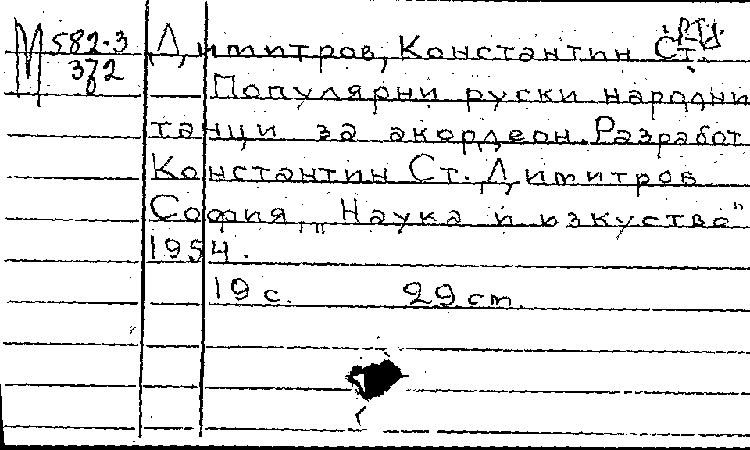 М 582-3 Димитров, Константин Ст.
372 Популярни руски народни
танци за акордеон. Разработ
Константин Ст. Димитров
София, „Наука и изкуство"
1954.
19 с. 29 см.